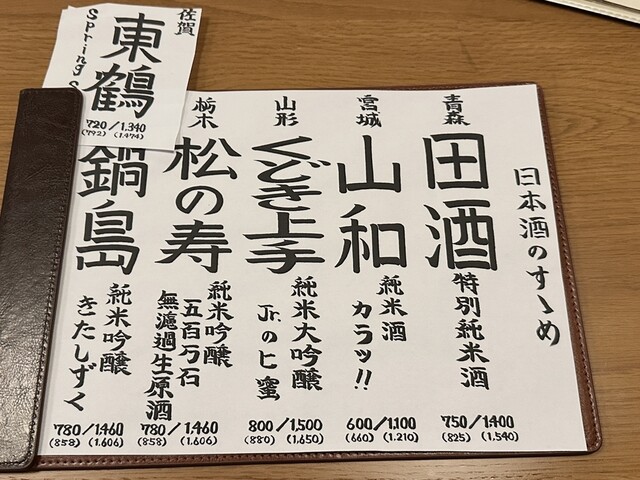 日本酒のすゝめ
青森
田酒
特別純米酒
750/1,400
(825) (1,540)
宮城
山和
純米酒
カラッ!!
600/1,100
(660) (1,210)
山形
くどき上手
純米大吟醸
Jr.のヒ蜜
800/1,500
(880) (1,650)
栃木
松の寿
純米吟醸
五百万石
無濾過生原酒
780/1,460
(858) (1,606)
鍋島
純米吟醸
きたしずく
780/1,460
(858) (1,606)
佐賀
東鶴
Spring
720/1,340
(792) (1,474)